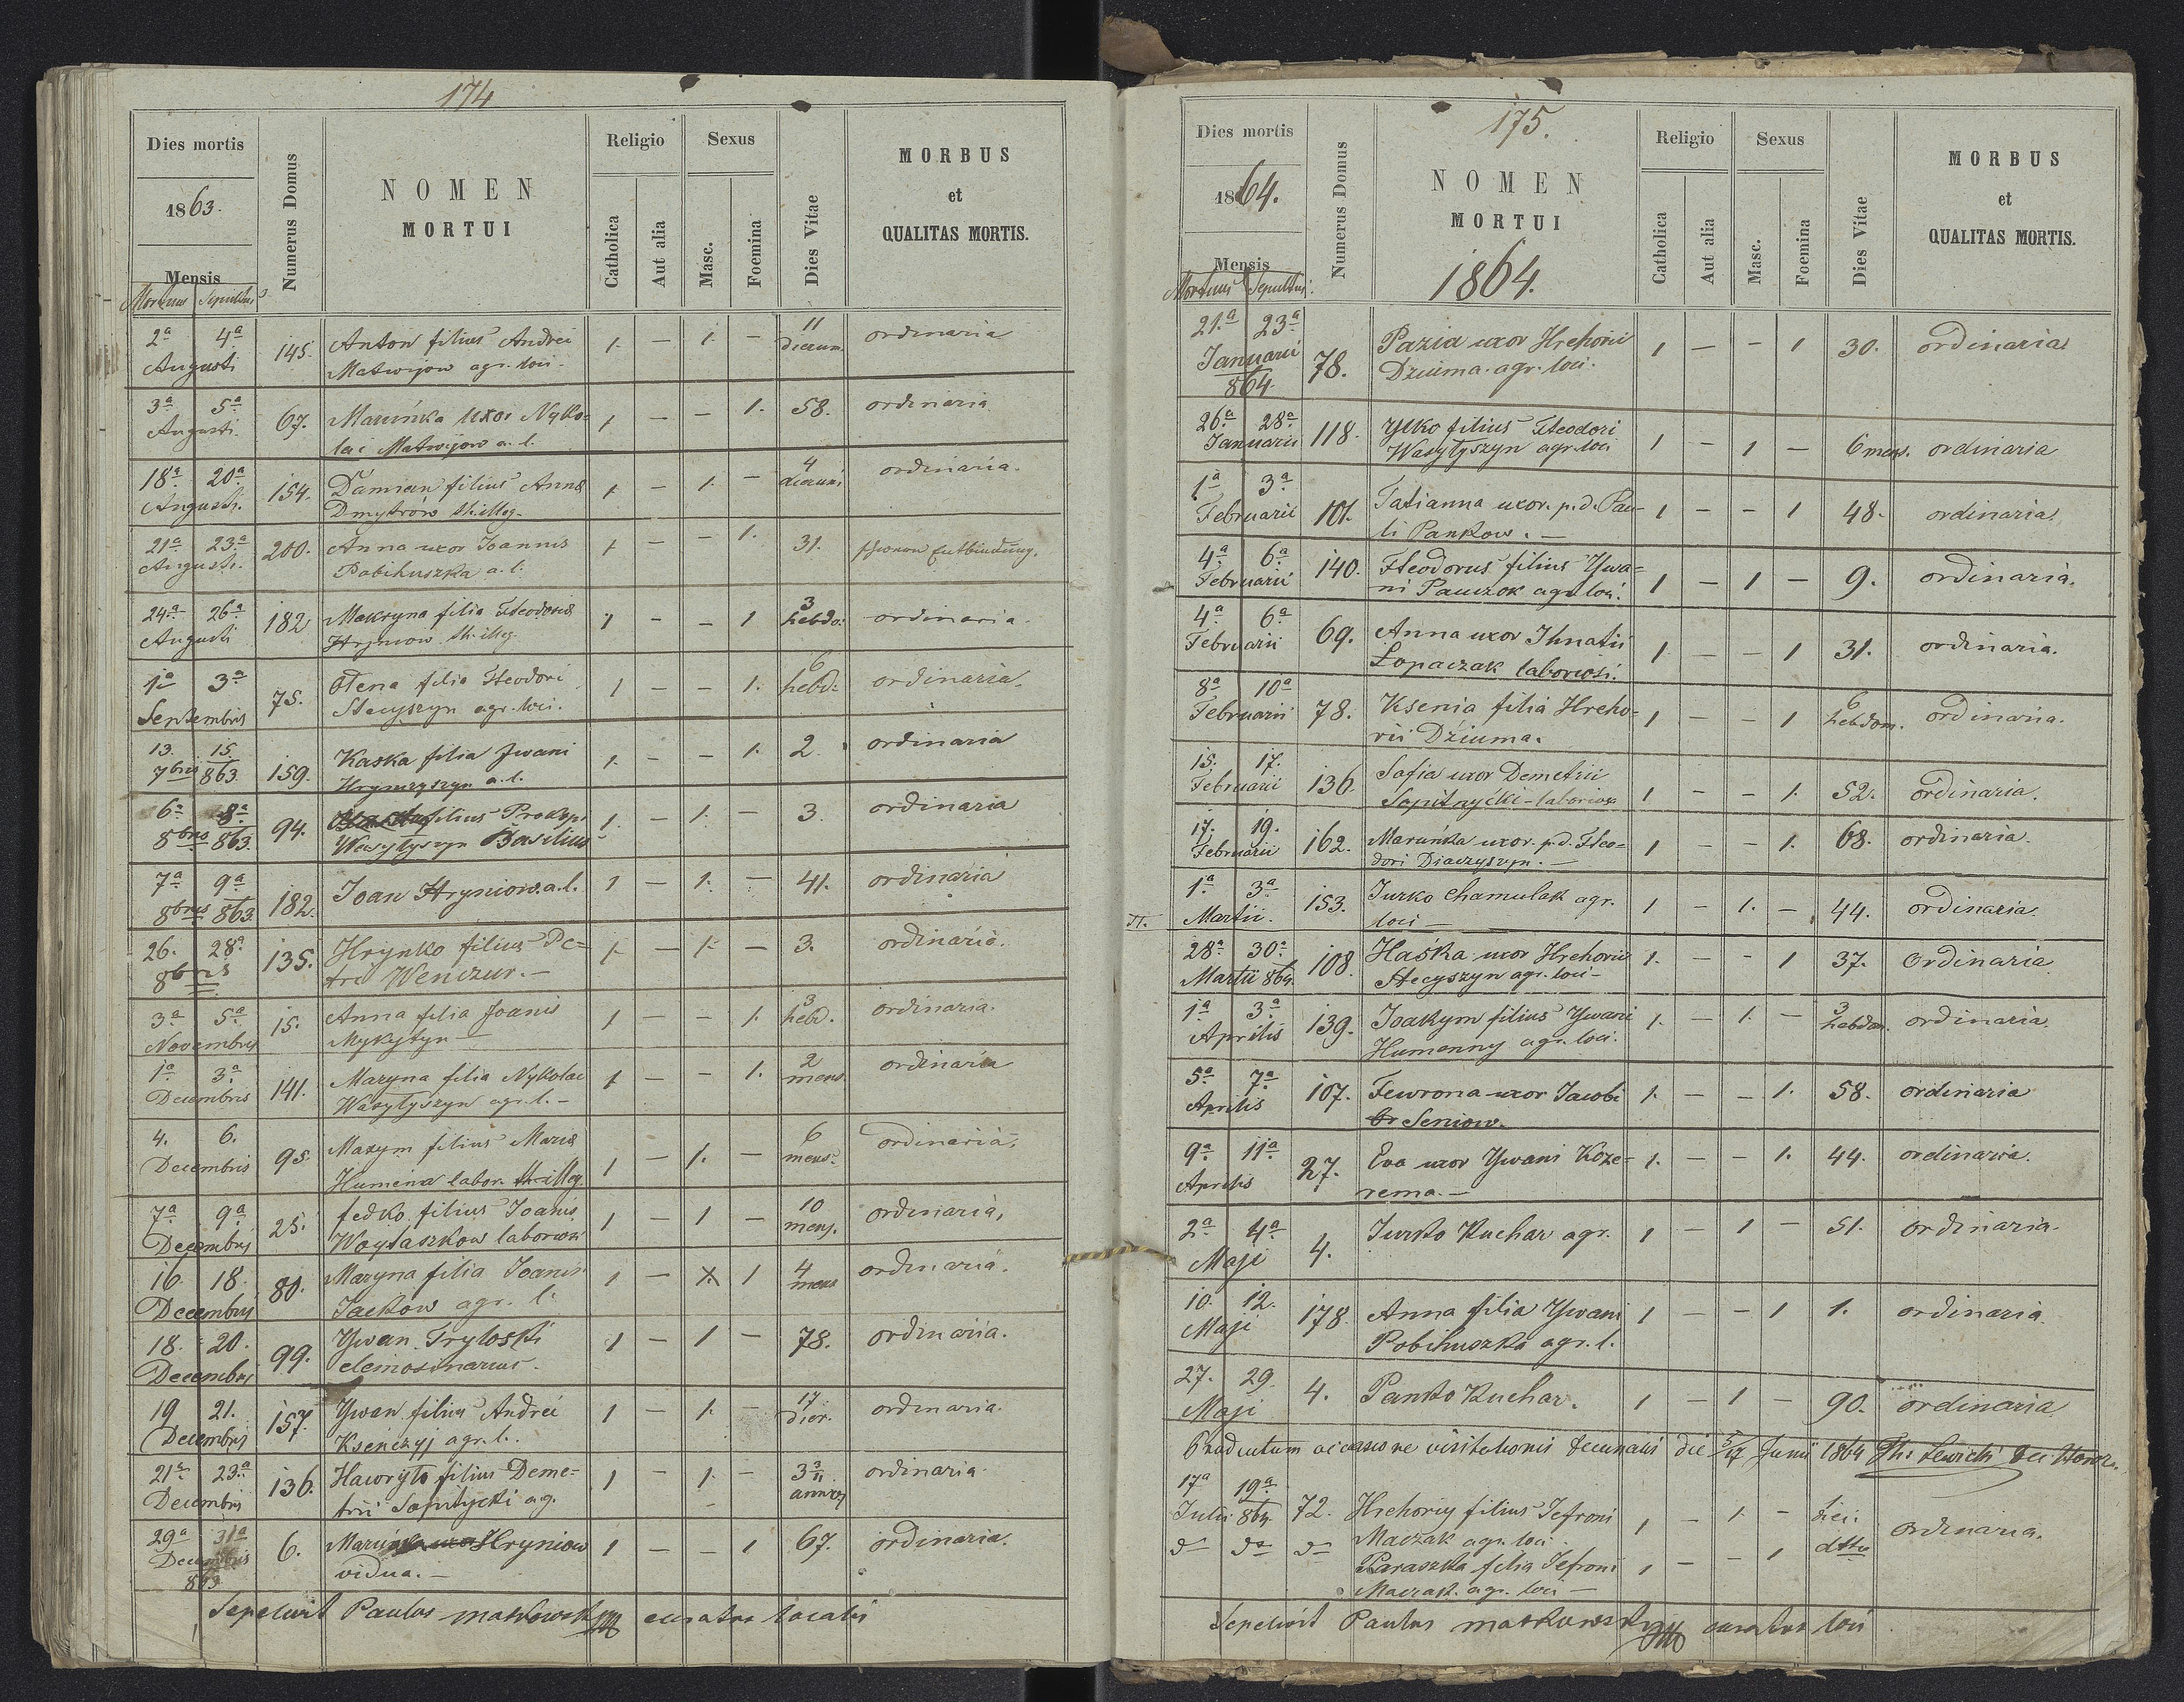 174
Dies mortis
1863.
Mensis
Mortuus Sepultus
Numerus Domus
NOMEN
MORTUI
Religio
Catholica
Aut alia
Sexus
Masc.
Foemina
Dies Vitae
MORBUS
et
QUALITAS MORTIS.
2a 4a Augusti 145. Anton filius Andrei 1. — 1. — 11 dierum ordinaria
Matwijow agr. loci.
3a 5a Augusti 67. Maruńka uxor Nyko- 1 — — 1. 58. ordinaria
lai Matwijow a. l.
18a 20a Augusti. 154. Damian filius Anna 1. — 1. — 4 dierum ordinaria.
Dmytrów th. illeg.
21a 23a Augusti. 200. Anna uxor Joannis 1 — — 1. 31. Entbindung.
Pobihuszka a. l.
24a 26a Augusti 182 Maksyna filia Theodosia 1 — — 1 3 hebdo. ordinaria.
Hryniow th. illeg.
1a 3a Septembris 75. Olena filia Theodori 1 — — 1. 6 hebd. ordinaria.
Stecyszyn agr. loci.
13. 15 7bris 863. 159. Kaska filia Jwani 1. — — 1. 2. ordinaria
Hrynczyszyn a. l.
6a 8a 8bris 863. 94. filius Prokopi 1. — 1. — 3. ordinaria
Wasylyszyn Basilius
7a 9a 8bris 863. 182. Joan Hryniow a. l. 1 — 1. — 41. ordinaria
26. 28a 8bris 135. Hrynko filius Pe- 1. — 1. — 3. ordinaria.
tri Wenczur. —
3a 5a Novembris 15. Anna filia Joanis 1 — — 1. 3 hebd. ordinaria.
Mykytyn —
1a 3a Decembris 141. Maryna filia Nykolai 1 — — 1. 2 mens. ordinaria
Wasylyszyn agr. l. —
4. 6. Decembris 95. Maxym filius Maria 1 — 1. — 6 mens. ordinaria.
Humena labor. th. illeg.
7a 9a Decembris 25. fedko filius Joanis 1 — 1 — 10 mens. ordinaria,
Woytaszkow laboriosi
16. 18. Decembris 80. Maryna filia Joanis 1 — 1 4 mens ordinaria.
Jackow agr. l.
18. 20. Decembris 99. Ywan Tryloski 1 — 1 — 78. ordinaria.
elemosinarius.
19 21. Decembris 157. Ywan filius Andrei 1 — 1. — 17 dier. ordinaria.
Kseńczyj agr. l.
21a 23a Decembris 136. Hawryło filius Deme- 1 — 1. — 3 3/11 annor. ordinaria.
trii Sopitycki ag.
29a 31a Decembris 863 6. Maruńka Hryniow 1 — — 1 67. ordinaria.
vidua. —
Sepelivit Paulus curatus localis
175.
Dies mortis
1864.
Mensis
Mortuus Sepultus.
Numerus Domus
NOMEN
MORTUI
1864.
Religio
Catholica
Aut alia
Sexus
Masc.
Foemina
Dies Vitae
MORBUS
et
QUALITAS MORTIS.
21.a 23a Januarii 864. 78. Pazia uxor Hrehorii 1 — — 1 30. ordinaria
Dziuma. agr. loci.
26a 28a Januarii 118. Ylko filius Theodori 1 — 1 — 6 mens. ordinaria
Wasylyszyn agr. loci
1a 3a Februarii 101. Tatianna uxor. p. d. Pau- 1 — — 1 48. ordinaria.
li Pankow. —
4a 6a Februarii 140. Theodorus filius Ywa- 1 — 1 — 9. ordinaria.
ni Pauczok agr. loci.
4a 6a Februarii 69. Anna uxor Ihnatii 1 — — 1 31. ordinaria.
Łopaczak laboriosi.
8a 10a Februarii 78. Ksenia filia Hreho- 1 — — 1 6 hebdom. ordinaria.
rii Dziuma.
15. 17. Februarii 136. Sofia uxor Demetrii 1 — — 1. 52. ordinaria.
17. 19. Februarii 162. Maruńka uxor. p. d. Theo- 1 — — 1. 68. ordinaria.
dori Diaczyszyn. —
1a 3a Martii. 153. Jurko Chamulak agr. 1 — 1. — 44. ordinaria.
loci —
28a 30a Martii 864. 108. Haśka uxor Hrehorii 1. — — 1 37. Ordinaria
Stecyszyn agr. loci —
1a 3a Aprilis 139. Joakym filius Ywani 1. — 1. — 3 hebdom. ordinaria.
Humenny agr. loci.
5a 7a Aprilis 107. Fewrona uxor Jacobi 1. — — 1. 58. ordinaria
Seniow.
9a 11a Aprilis 27. Eva uxor Ywani Koze- 1. — — 1. 44. ordinaria.
rema. —
2a 4a Maji 4. Jurko Kuchar agr. 1 — 1 — 51. ordinaria.
10. 12. Maji 178. Anna filia Ywani 1 — — 1 1. ordinaria.
Pobihuszka agr. l.
27. 29 Maji 4. Panko Kuchar. 1 — 1 — 90. ordinaria.
occasione visitationis decanalis die 5/17 Junii 1864
17a 19a Julii 864. 72. Hrehoriy filius Jefroni 1 — 1. — 1 diei. ordinaria.
Maczak agr. loci.
Paraszka filia Jefroni 1 — — 1 dtto
Maczak. agr. loci —
Sepelivit Paulus curatus loci